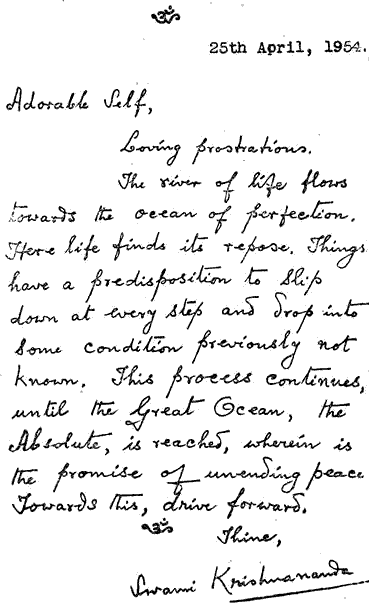 ॐ
25th April, 1954.
Adorable Self,
Loving prostrations.
The river of life flows
towards the ocean of perfection.
Here life finds its repose. Things
have a predisposition to slip
down at every step and drop into
some condition previously not
known. This process continues,
until the Great Ocean, the
Absolute, is reached, wherein is
the promise of unending peace
Towards this, drive forward.
ॐ
Thine,
Swami Krishnananda